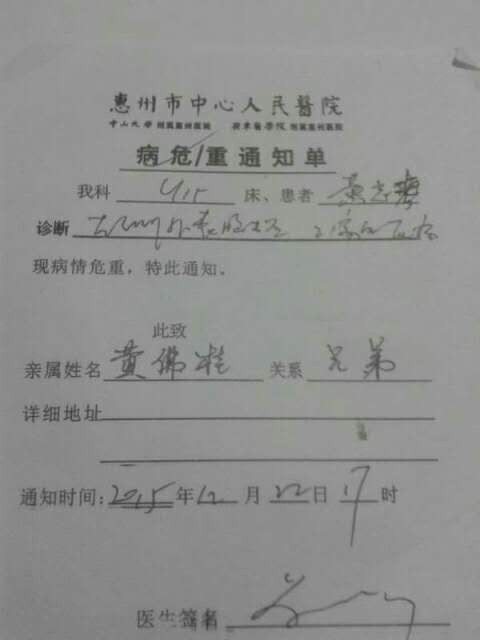 惠州市中心人民醫院
中山大學附属惠州医院 廣東醫學院附属惠州医院
病危/重通知单
我科 床、患者 黄
诊断
现病情危重，特此通知。
此致
亲属姓名 黄佛桂 关系 兄弟
详细地址
通知时间：2015年12月22日17时
医生签名